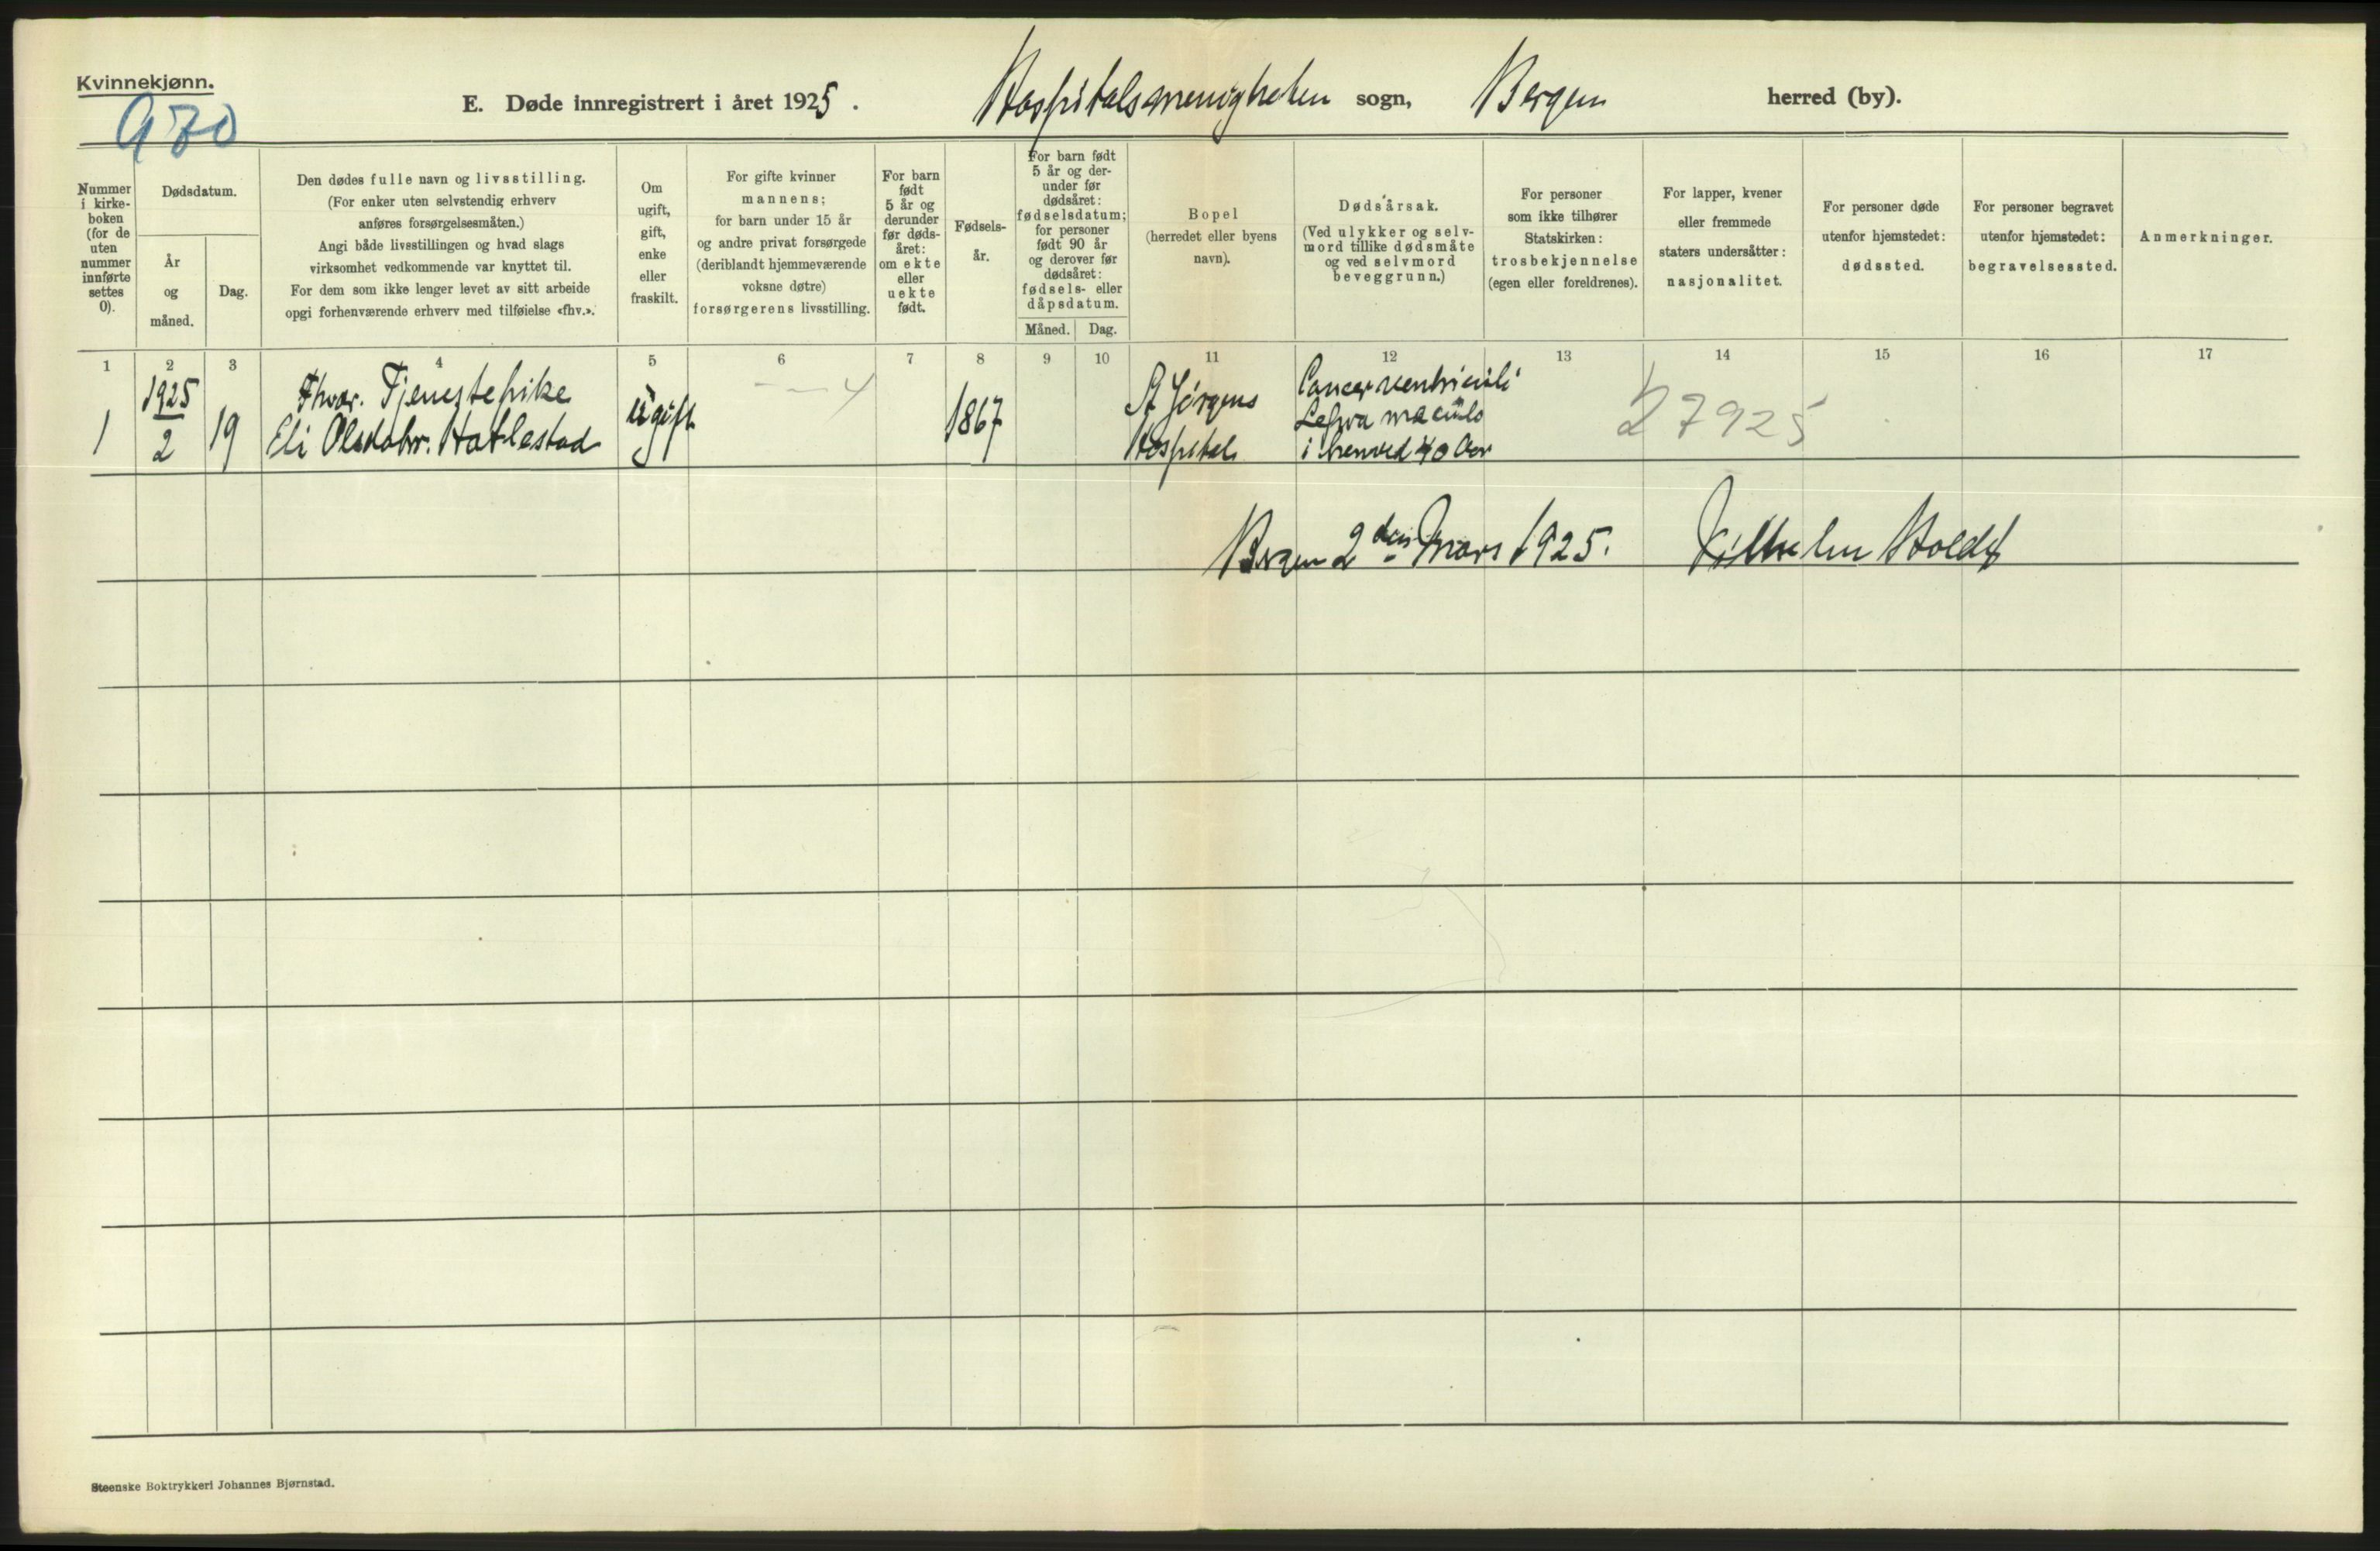 Kvinnekjønn.
970
E. Døde innregistrert i året 1925. Hospitalsmenigheten sogn, Bergen herred (by).
Nummer i kirke-boken (for de uten nummer innførte settes 0).
Dødsdatum.
År og måned.
Dag.
Den dødes fulle navn og livsstilling.
(For enker uten selvstendig erhverv
anføres forsørgelsesmåten.)
Angi både livsstillingen og hvad slags
virksomhet vedkommende var knyttet til.
For dem som ikke lenger levet av sitt arbeide
opgi forhenværende erhverv med tilføielse «fhv.».
Om
ugift,
gift,
enke
eller
fraskilt.
For gifte kvinner
mannens;
for barn under 15 år
og andre privat forsørgede
(deriblandt hjemmeværende
voksne døtre)
forsørgerens livsstilling.
For barn
født
5 år og
derunder
før døds-
året:
om ekte
eller
uekte
født.
Fødsels-
år.
For barn født
5 år og der-
under før
dødsåret:
fødselsdatum;
for personer
født 90 år
og derover før
dødsåret:
fødsels- eller
dåpsdatum.
Måned. Dag.
Bopel
(herredet eller byens
navn).
Dødsårsak.
(Ved ulykker og selv-
mord tillike dødsmåte
og ved selvmord
beveggrunn.)
For personer
som ikke tilhører
Statskirken:
trosbekjennelse
(egen eller foreldrenes).
For lapper, kvener
eller fremmede
staters undersåtter:
nasjonalitet.
For personer døde
utenfor hjemstedet:
dødssted.
For personer begravet
utenfor hjemstedet:
begravelsessted.
Anmerkninger.
1 2 3 4 5 6 7 8 9 10 11 12 13 14 15 16 17
1
1925
2
19
Fhvær. Tjenestepike
Eli Olsdatr. Hatlestad
Ugift
4
1867
St Jørgens
Hospital
Cancer ventriculi
Lepra maculo
i henved 40 Aar
27925
Bergen 2den Mars 1925. Vilhelm Holdt
Steenske Boktrykkeri Johannes Bjørnstad.